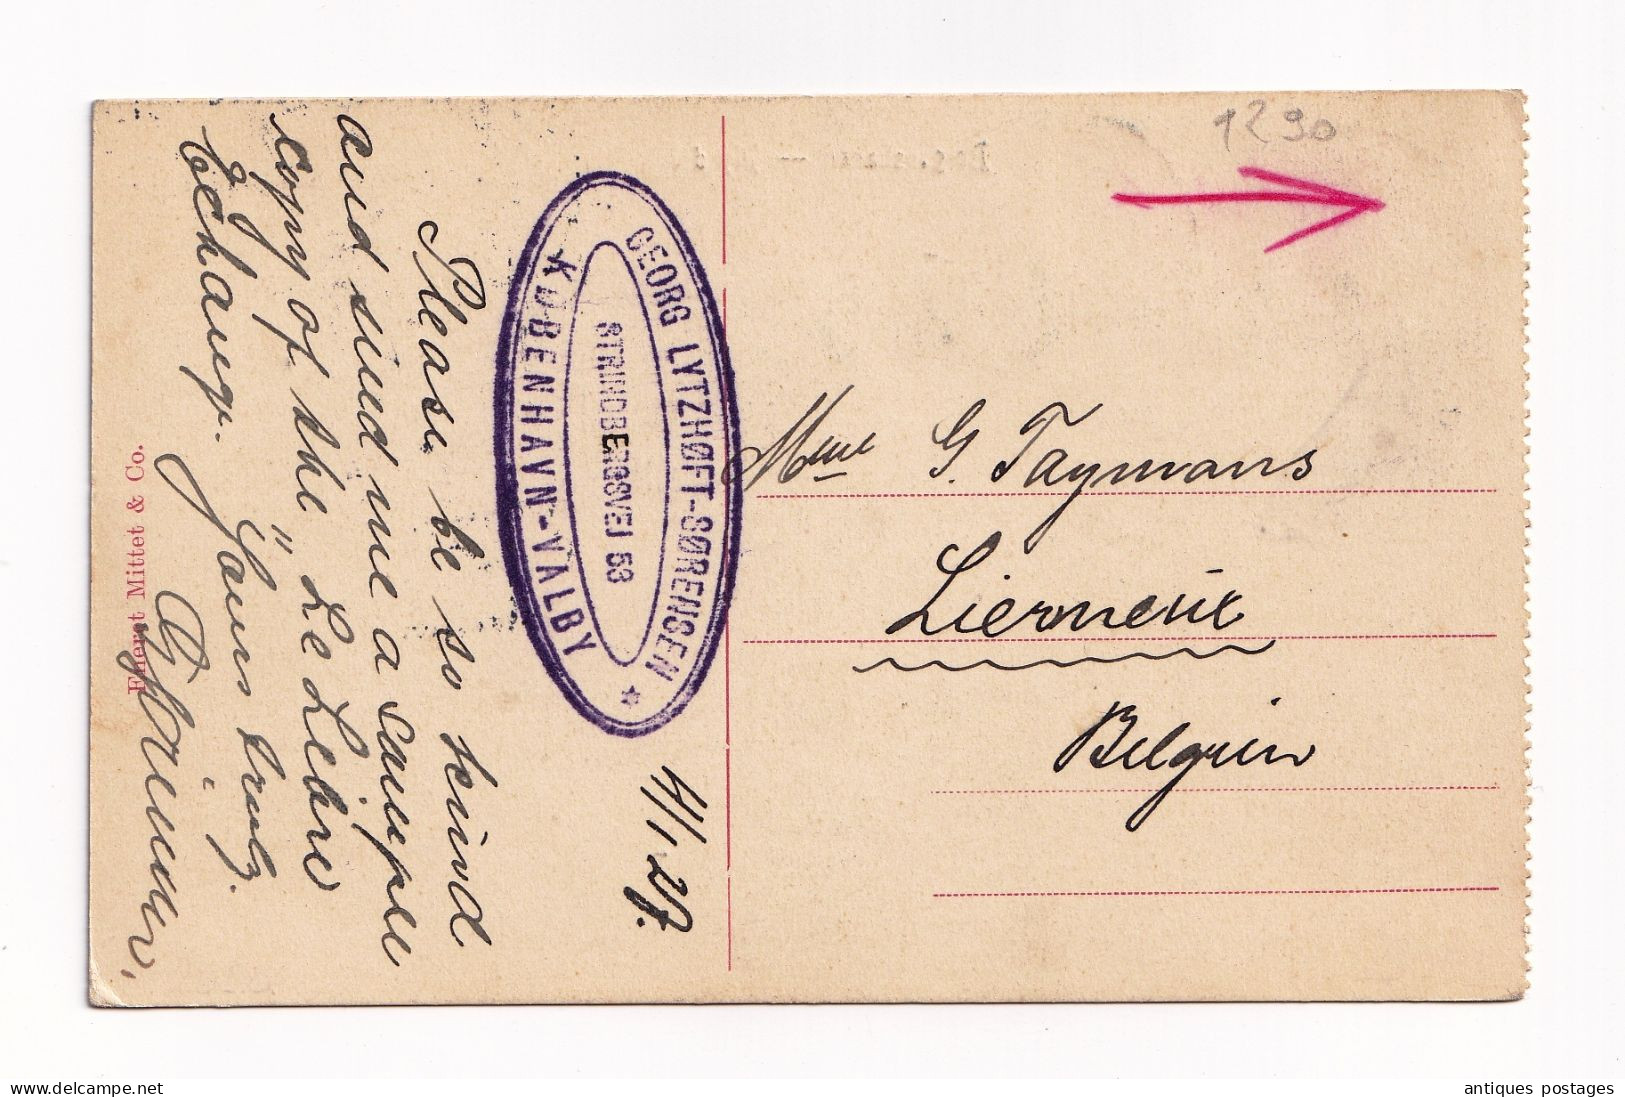 4/1 27.
GEORG LYTZHØFT-SØRENSEN
STRINDBERGSVEJ 53
KØBENHAVN-VALBY
Please be so kind
and send me a sample
copy of the "Le Libre
Echange".
Yours truly.
Enerst Mittet & Co.
1290
Mme G. Taymans
Lierneux
Belgien
www.delcampe.net
antiques postages